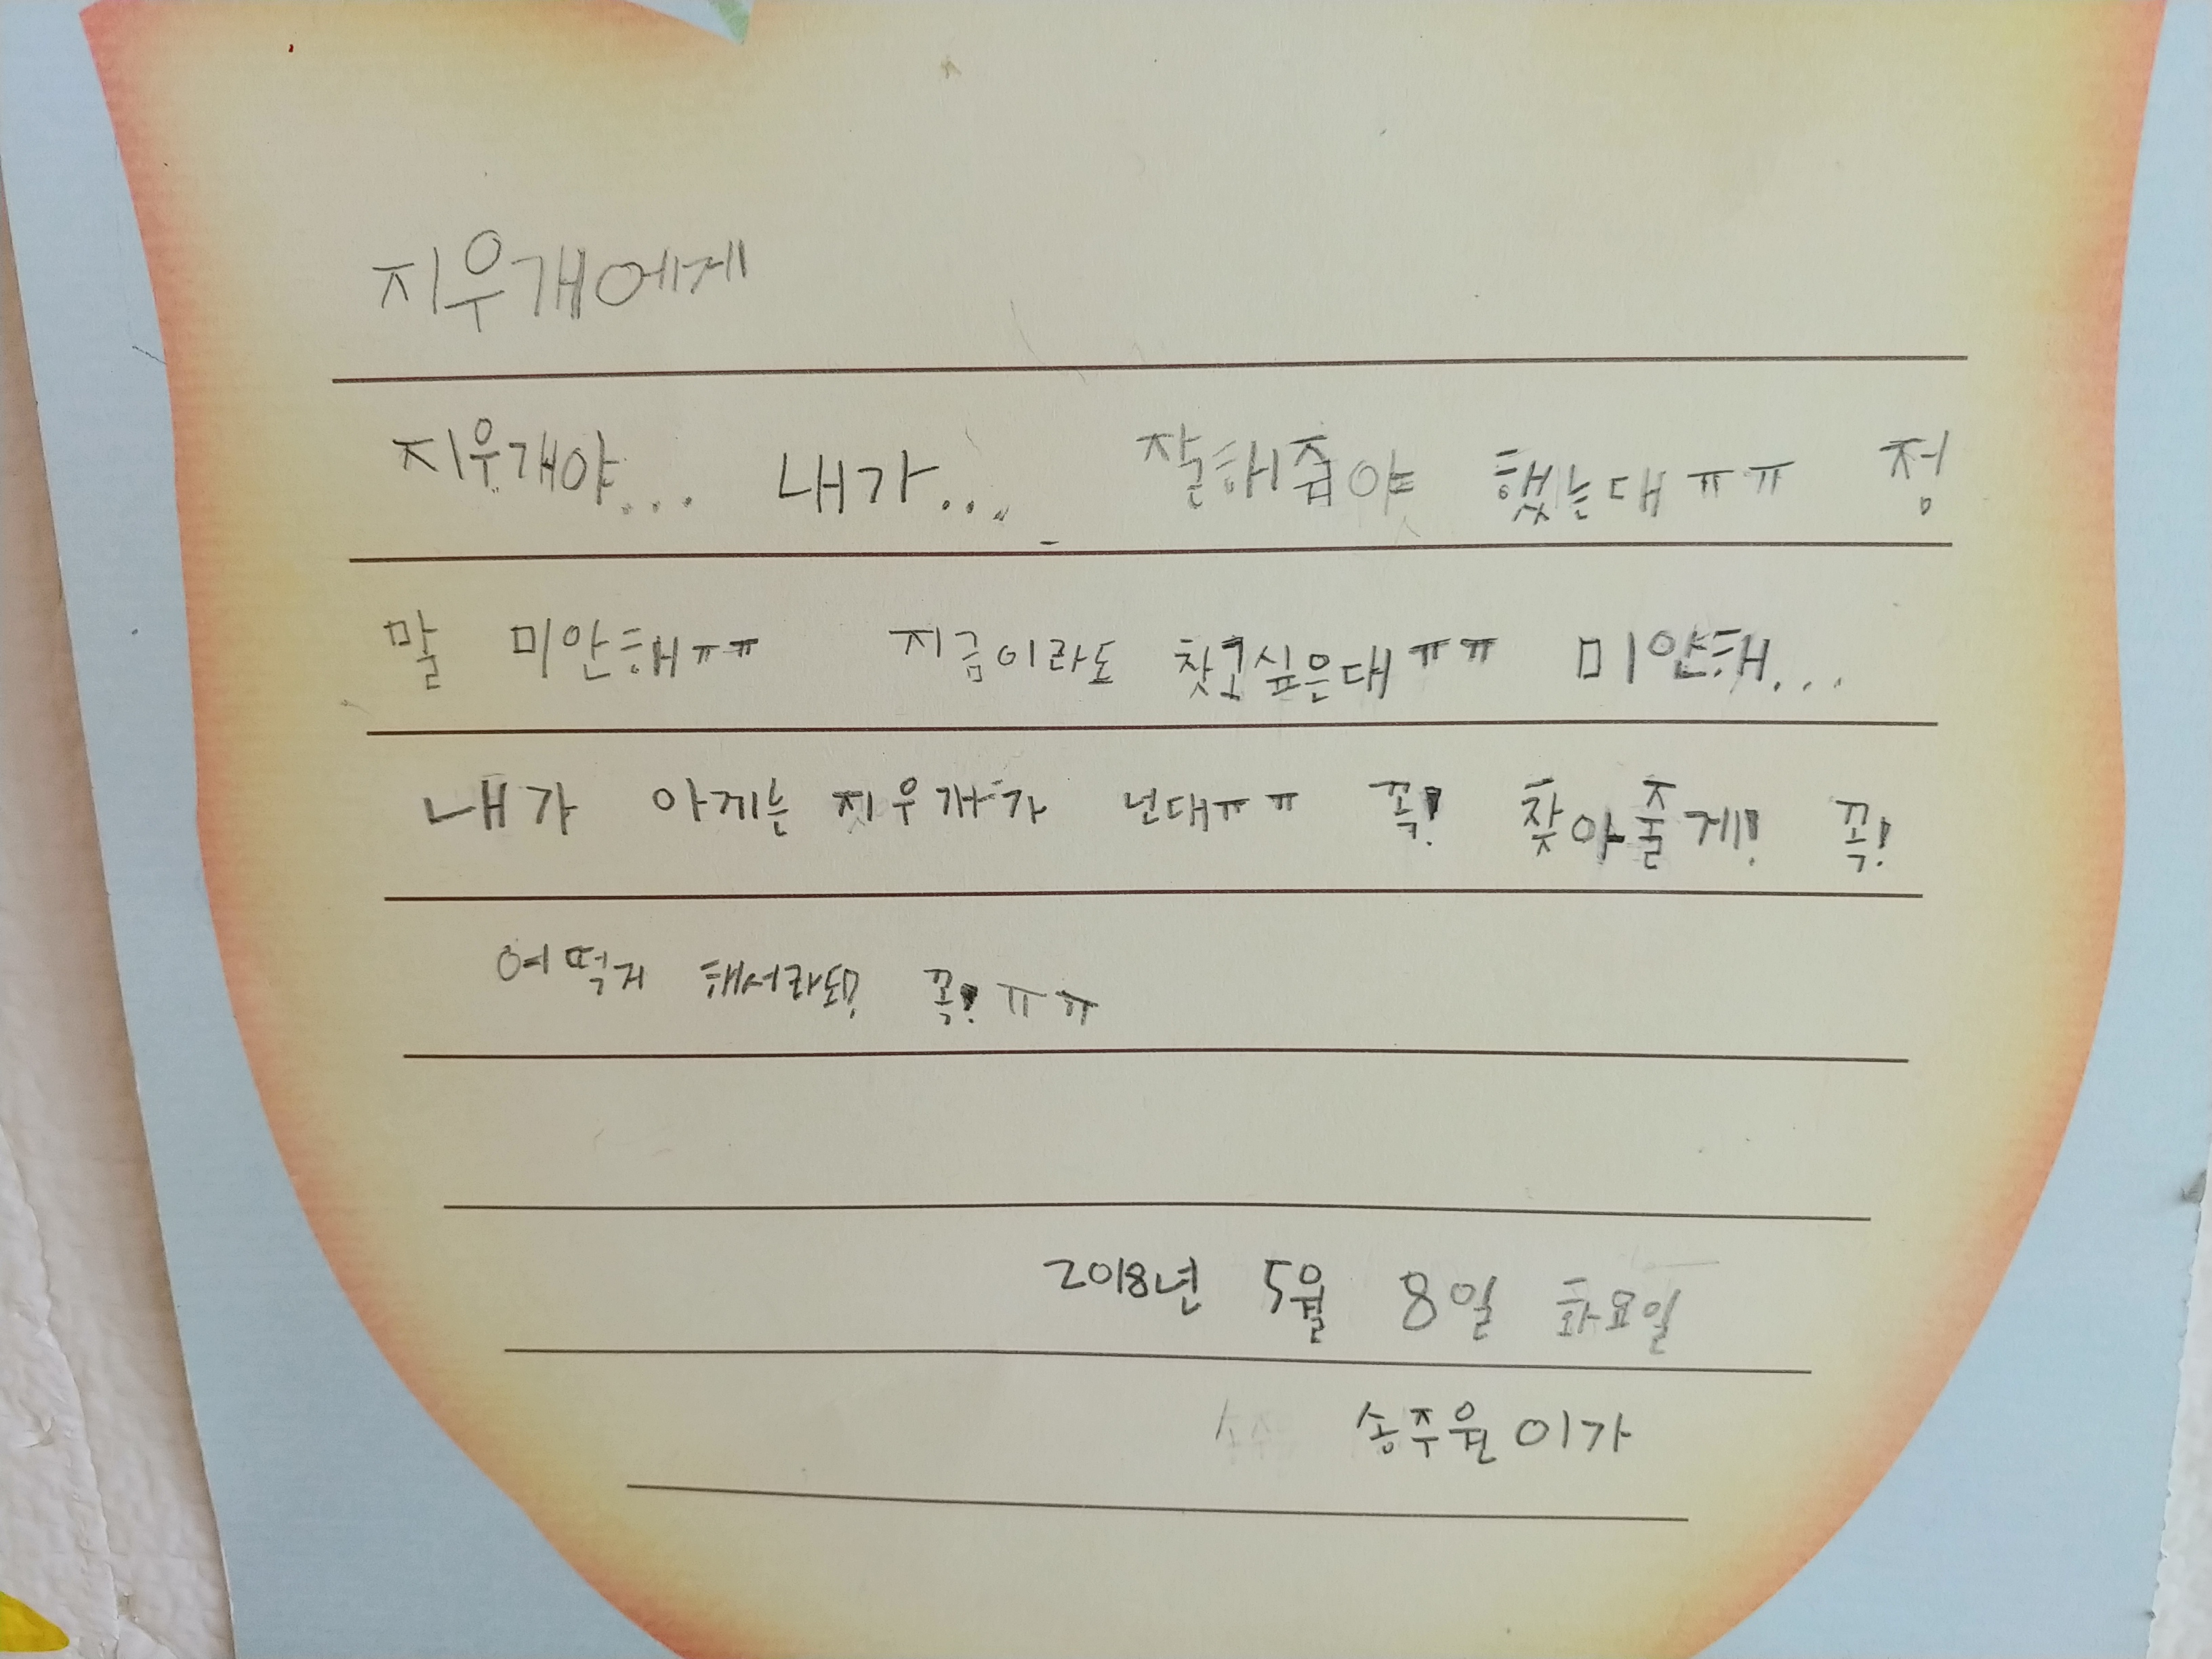 지우개에게
지우개야... 내가... 잘해줘야 했는대 ㅠㅠ 정
말 미안해ㅠㅠ 지금이라도 찾고싶은대 ㅠㅠ 미안해...
내가 아끼는 지우개가 넌대ㅠㅠ 꼭! 찾아줄게! 꼭!
어떡게 해서라도! 꼭! ㅠㅠ
2018년 5월 8일 화요일
송주원이가